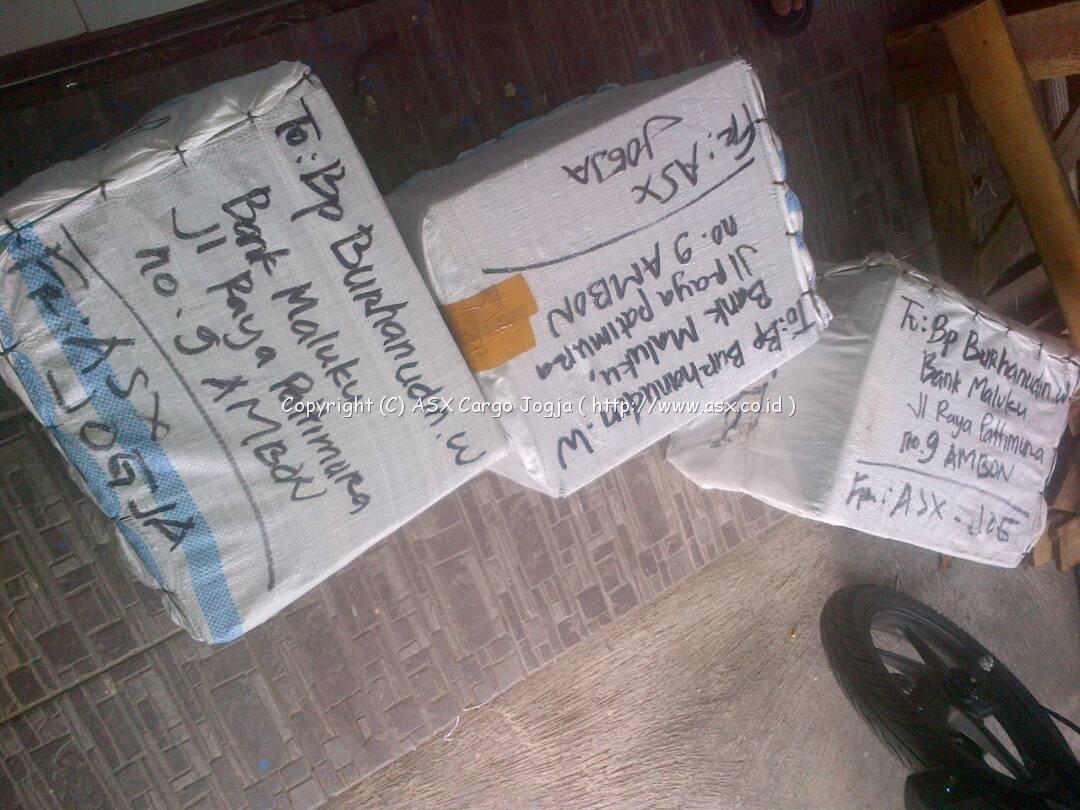 To : Bp Burhanudin.W
Bank Maluku
Jl Raya Patimura
no. 9 AMBON
Fr : ASX
JOGJA
Fr : ASX
JOGJA
To : Bp Burhanudin.W
Bank Maluku,
Jl raya patimura
no. 9 AMBON
To : Bp Burhanudin.W
Bank Maluku
Jl Raya Pattimura
no. 9 AMBON
Fr : ASX - JOG
Copyright (C) ASX Cargo Jogja ( http://www.asx.co.id )